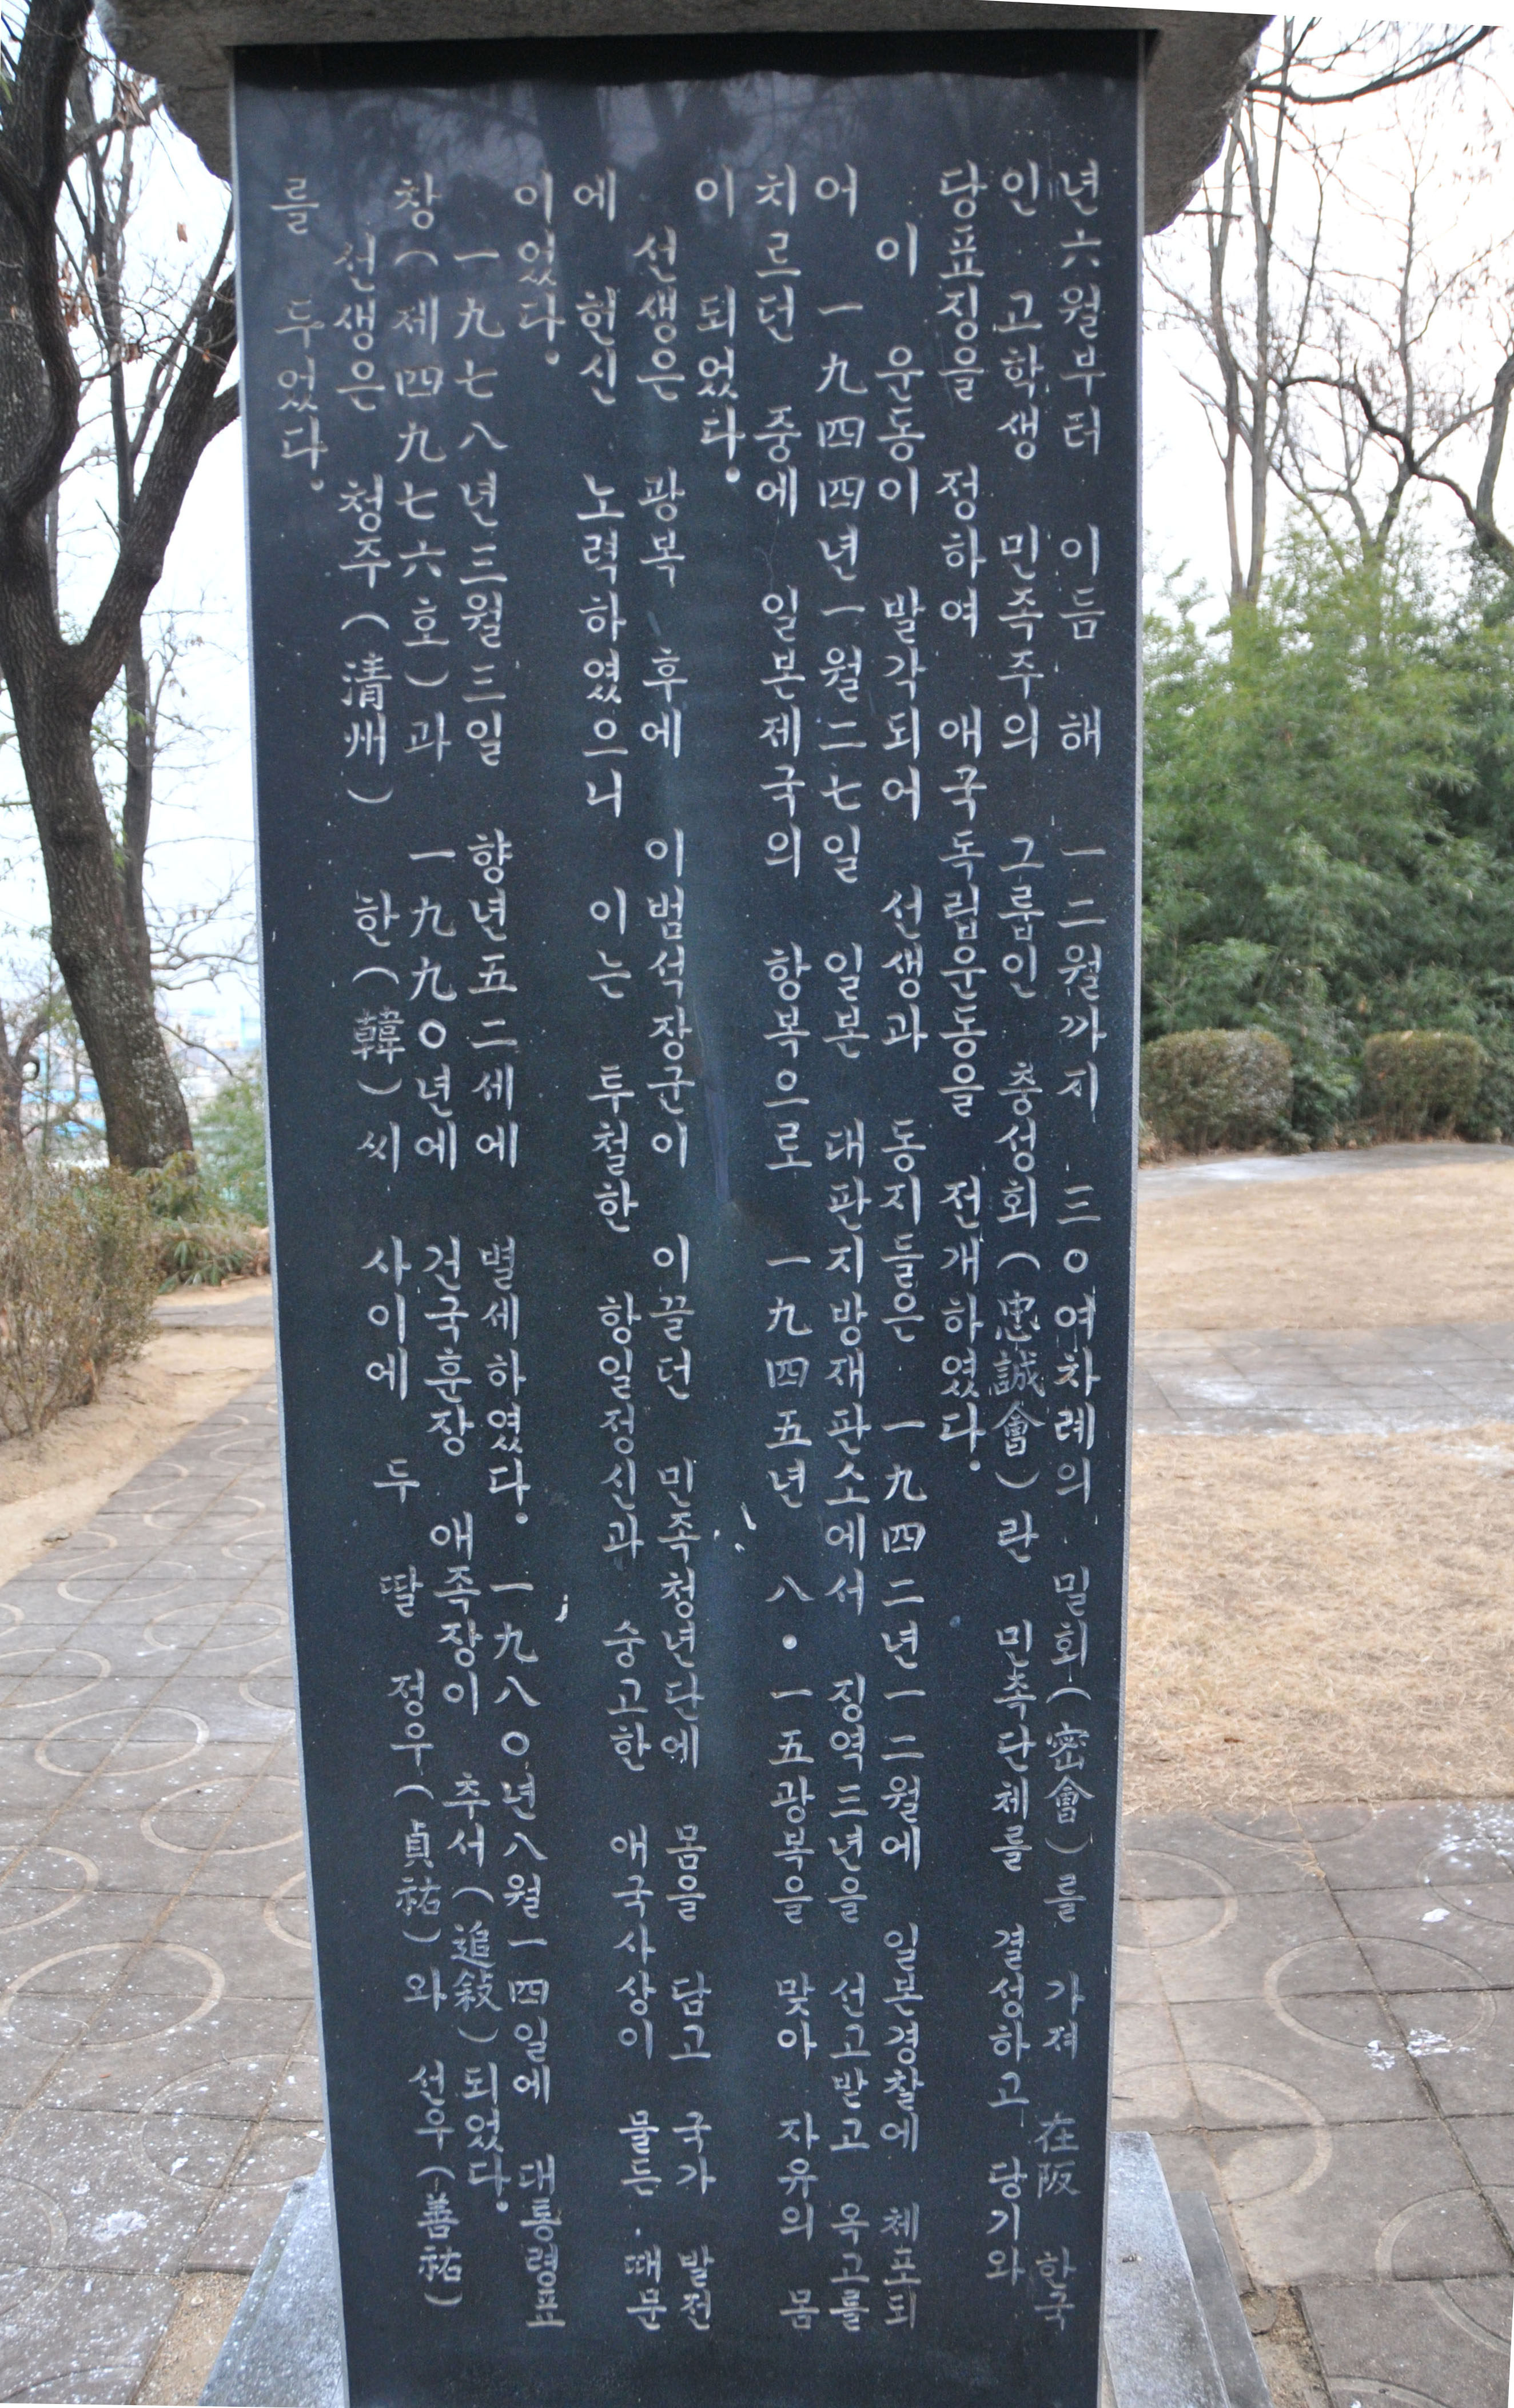 년六월부터 이듬 해 一二월까지 三○여차례의 밀회(密會)를 가져 在阪 한국
인 고학생 민족주의 그룹인 충성회(忠誠會)란 민족단체를 결성하고 당기와
당표징을 정하여 애국독립운동을 전개하였다.
이 운동이 발각되어 선생과 동지들은 一九四二년一二월에 일본경찰에 체포되
어 一九四四년一월二七일 일본 대판지방재판소에서 징역三년을 선고받고 옥고를
치르던 중에 일본제국의 항복으로 一九四五년 八·一五광복을 맞아 자유의 몸
이 되었다.
선생은 광복 후에 이범석장군이 이끌던 민족청년단에 몸을 담고 국가 발전
에 헌신 노력하였으니 이는 투철한 항일정신과 숭고한 애국사상이 물든 때문
이었다.
一九七八년三월三일 향년五二세에 별세하였다. 一九八○년八월一四일에 대통령표
창(제四九七六호)과 一九九○년에 건국훈장 애족장이 추서(追敍)되었다.
선생은 청주(清州) 한(韓)씨 사이에 두 딸 정우(貞祐)와 선우(善祐)
를 두었다.